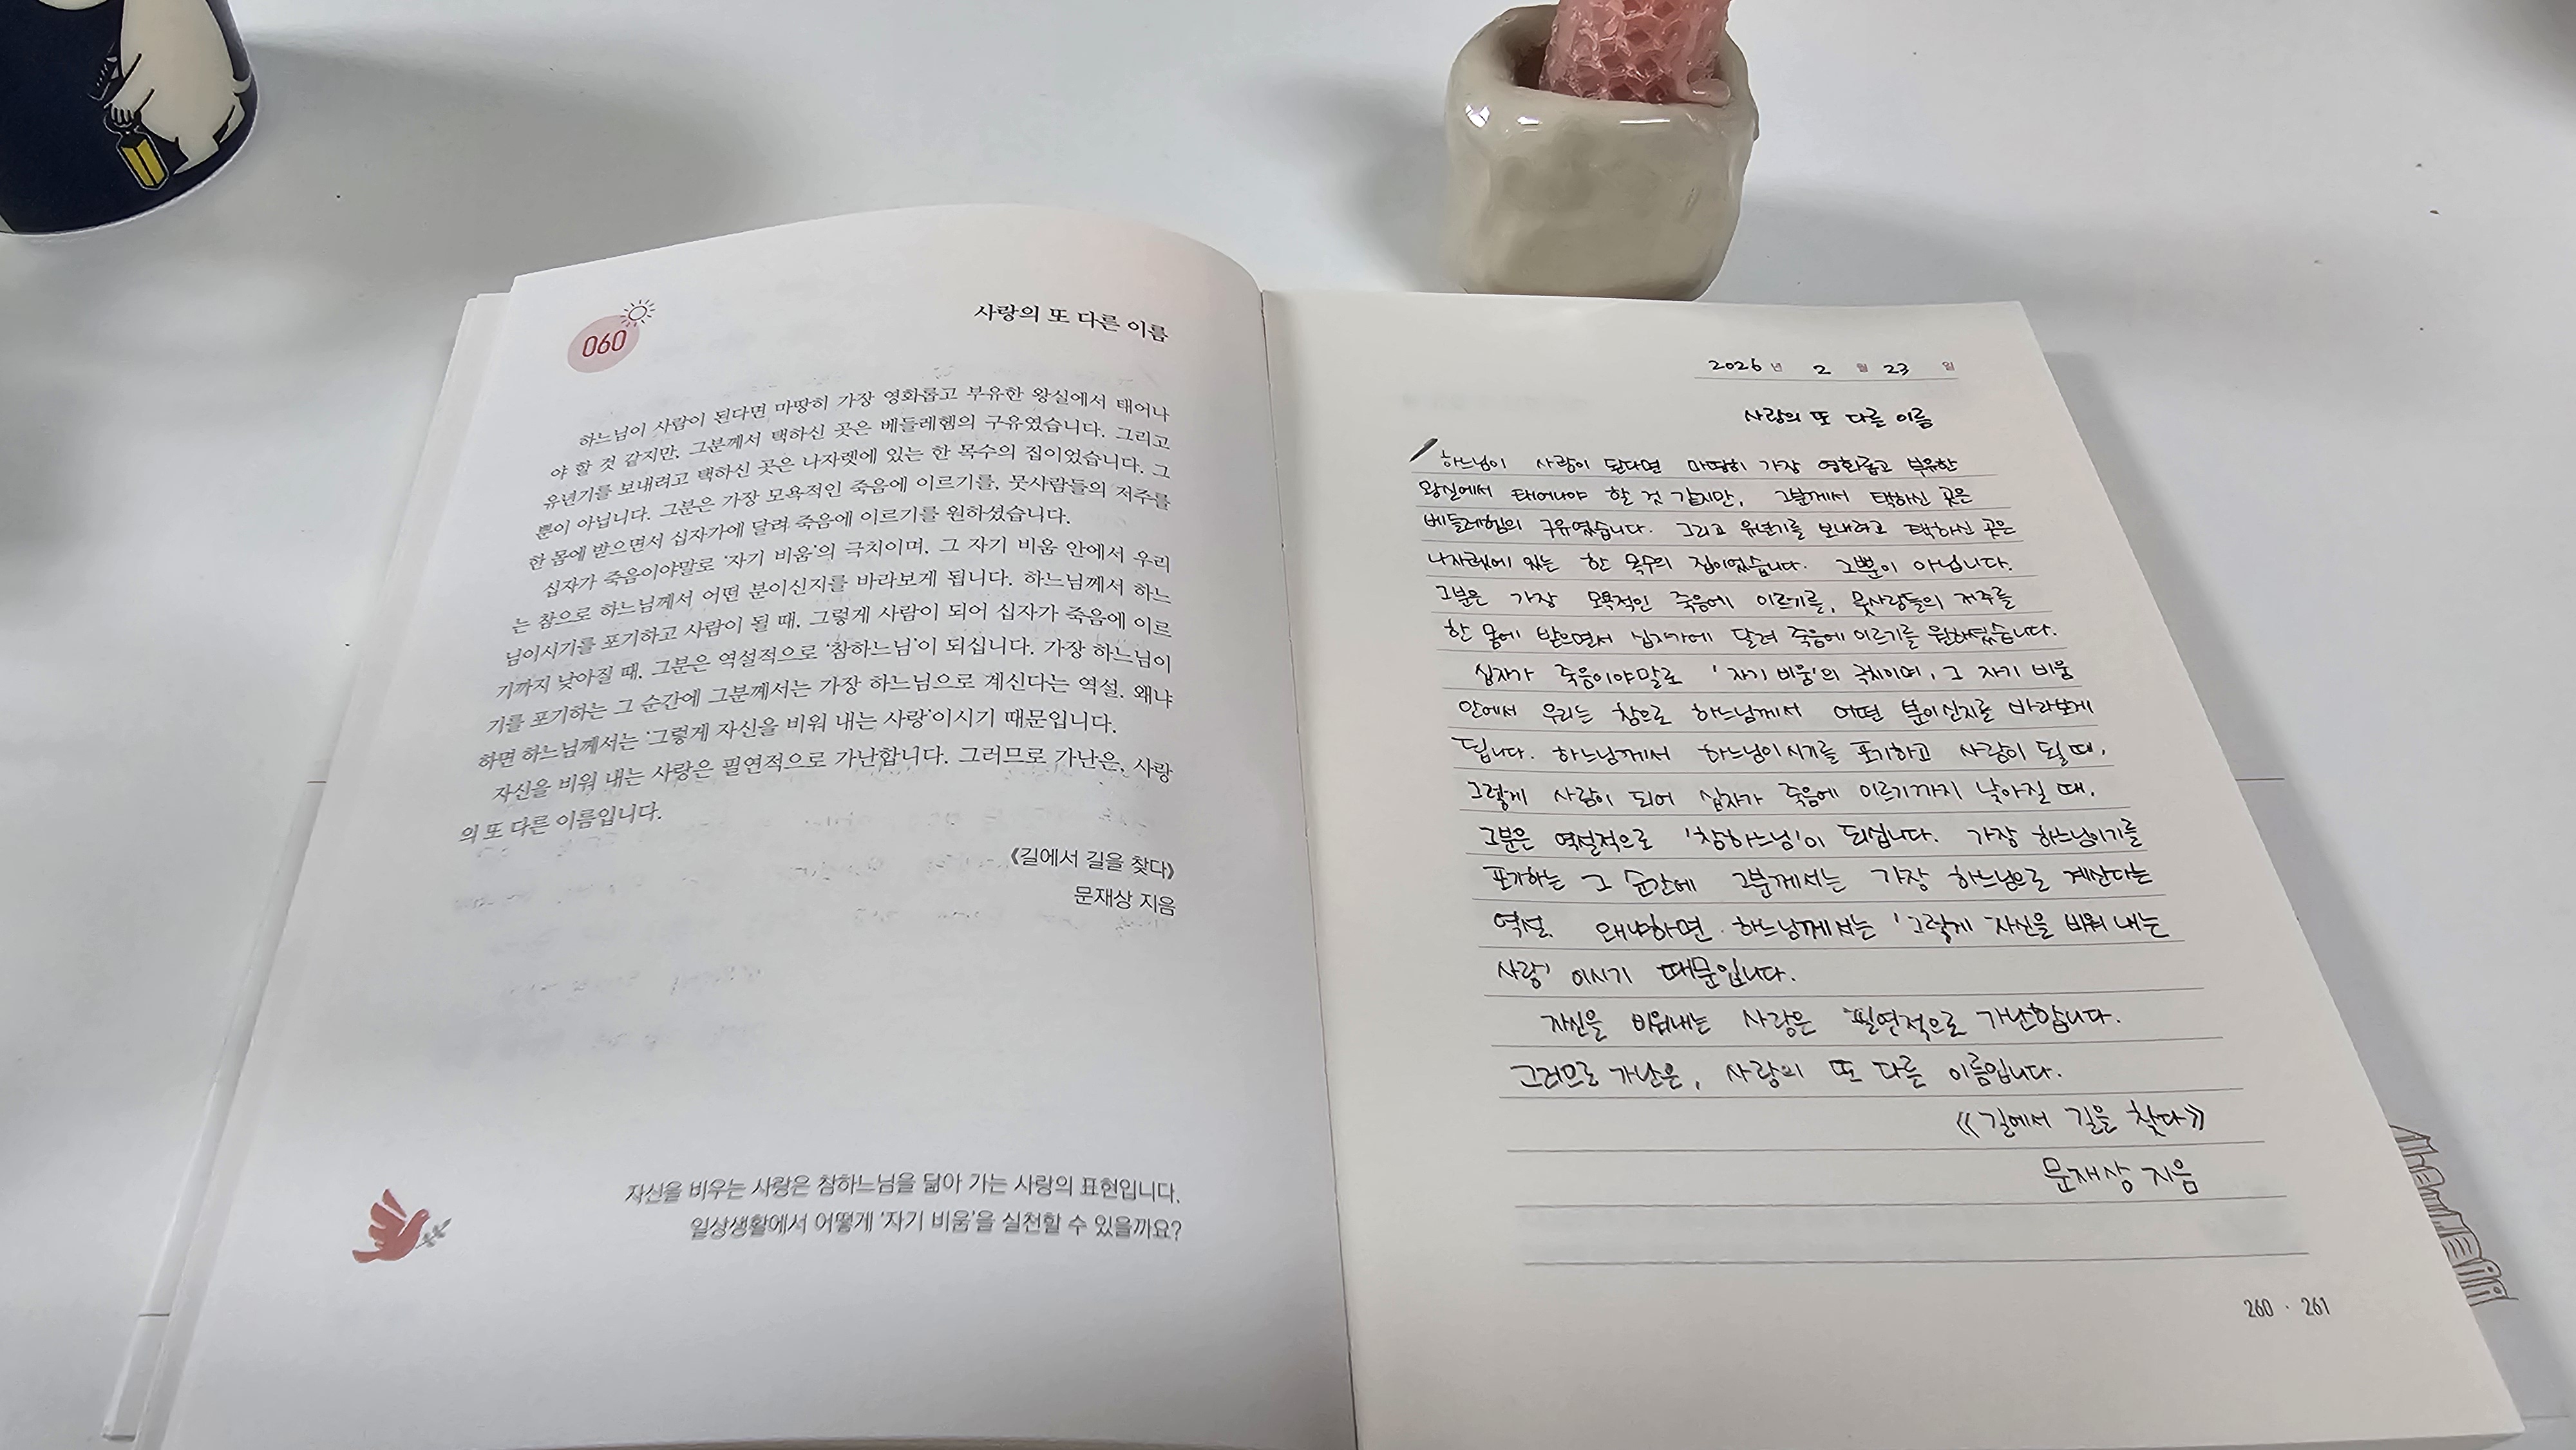 060
사랑의 또 다른 이름
하느님이 사람이 된다면 마땅히 가장 영화롭고 부유한 왕실에서 태어나
야 할 것 같지만, 그분께서 택하신 곳은 베들레헴의 구유였습니다. 그리고
유년기를 보내려고 택하신 곳은 나자렛에 있는 한 목수의 집이었습니다. 그
뿐이 아닙니다. 그분은 가장 모욕적인 죽음에 이르기를, 뭇사람들의 저주를
한 몸에 받으면서 십자가에 달려 죽음에 이르기를 원하셨습니다.
십자가 죽음이야말로 ‘자기 비움’의 극치이며, 그 자기 비움 안에서 우리
는 참으로 하느님께서 어떤 분이신지를 바라보게 됩니다. 하느님께서 하느
님이시기를 포기하고 사람이 될 때, 그렇게 사람이 되어 십자가 죽음에 이르
기까지 낮아질 때, 그분은 역설적으로 ‘참하느님’이 되십니다. 가장 하느님이
기를 포기하는 그 순간에 그분께서는 가장 하느님으로 계신다는 역설. 왜냐
하면 하느님께서는 ‘그렇게 자신을 비워 내는 사랑’이시기 때문입니다.
자신을 비워 내는 사랑은 필연적으로 가난합니다. 그러므로 가난은, 사랑
의 또 다른 이름입니다.
《길에서 길을 찾다》
문재상 지음
자신을 비우는 사랑은 참하느님을 닮아 가는 사랑의 표현입니다.
일상생활에서 어떻게 ‘자기 비움’을 실천할 수 있을까요?
2026 년 2 월 23 일
사랑의 또 다른 이름
하느님이 사람이 된다면 마땅히 가장 영화롭고 부유한
왕실에서 태어나야 할 것 같지만, 그분께서 택하신 곳은
베들레헴의 구유였습니다. 그리고 유년기를 보내려고 택하신 곳은
나자렛에 있는 한 목수의 집이었습니다. 그뿐이 아닙니다.
그분은 가장 모욕적인 죽음에 이르기를, 뭇사람들의 저주를
한 몸에 받으면서 십자가에 달려 죽음에 이르기를 원하셨습니다.
십자가 죽음이야말로 '자기 비움'의 극치이며, 그 자기 비움
안에서 우리는 참으로 하느님께서 어떤 분이신지를 바라보게
됩니다. 하느님께서 하느님이시기를 포기하고 사람이 될 때,
그렇게 사람이 되어 십자가 죽음에 이르기까지 낮아질 때,
그분은 역설적으로 '참하느님'이 되십니다. 가장 하느님이기를
포기하는 그 순간에 그분께서는 가장 하느님으로 계신다는
역설. 왜냐하면 하느님께서는 '그렇게 자신을 비워 내는
사랑' 이시기 때문입니다.
자신을 비워내는 사랑은 필연적으로 가난합니다.
그러므로 가난은, 사랑의 또 다른 이름입니다.
《길에서 길을 찾다》
문재상 지음
260 · 261